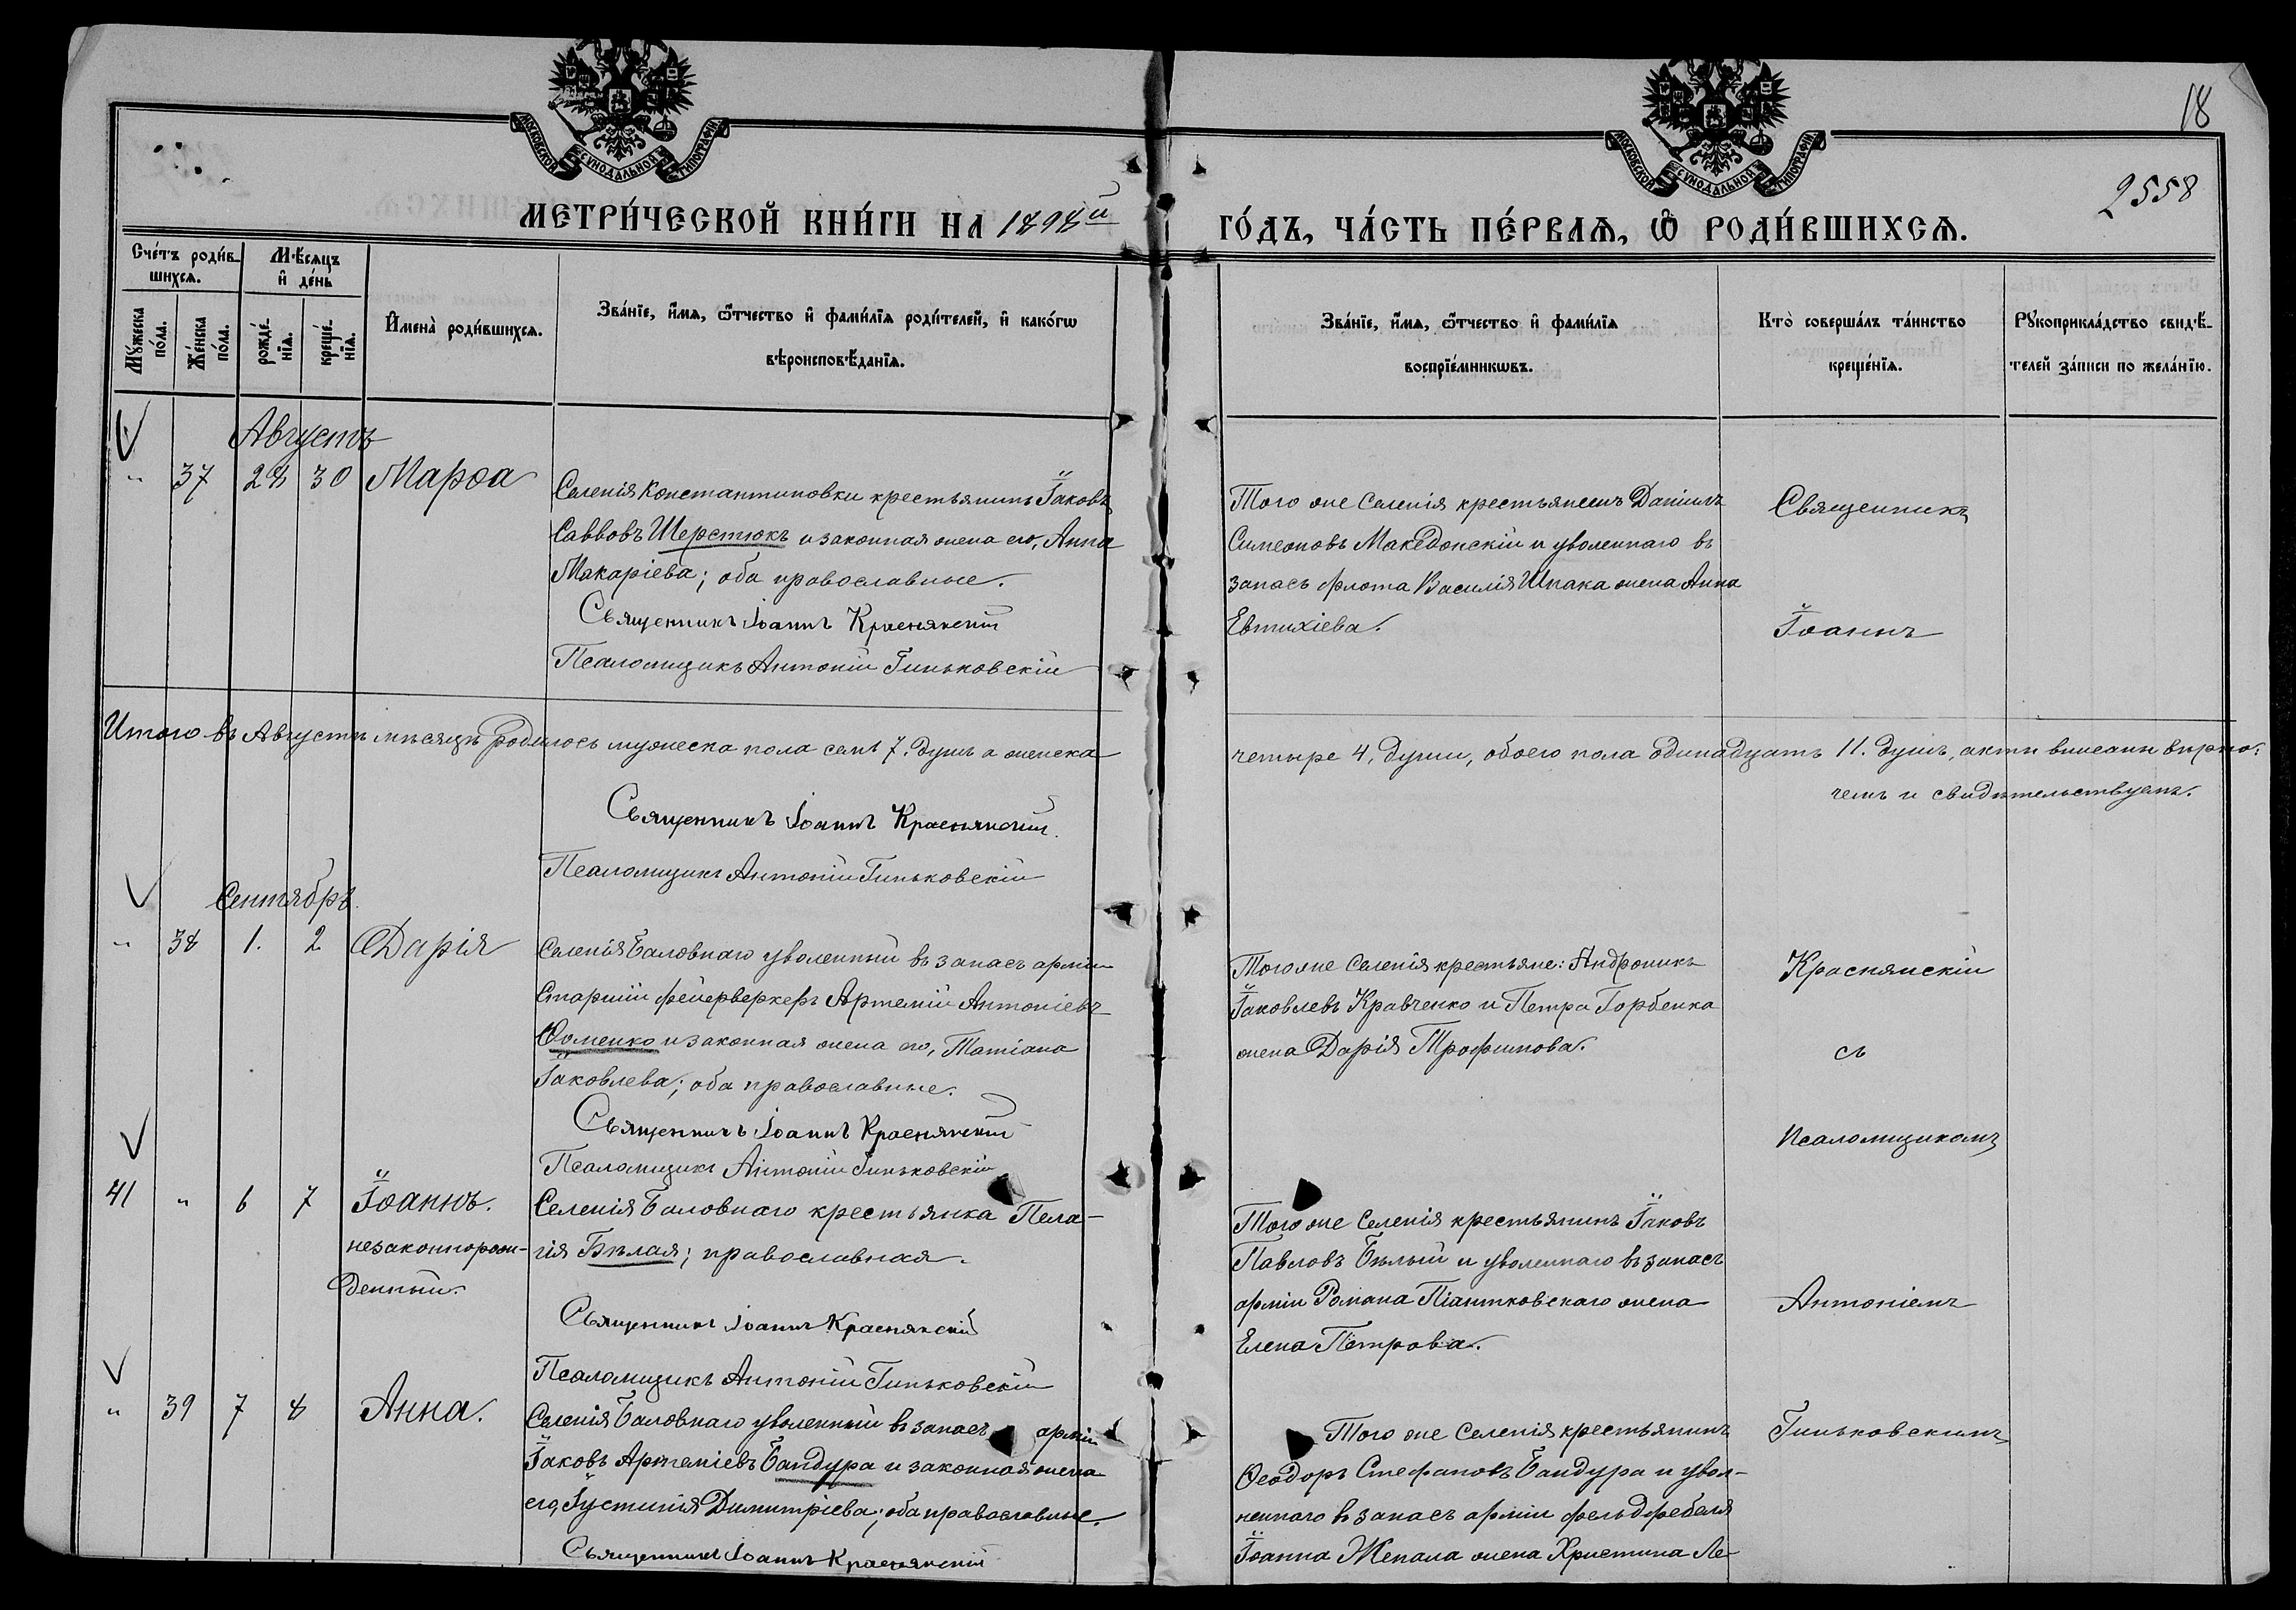 18
2558
МОСКОВСКОЙ СУНОДАЛЬНОЙ ТИПОГРАФІИ
МОСКОВСКОЙ СУНОДАЛЬНОЙ ТИПОГРАФІИ
МЕТРИ́ЧЕСКОЙ КНИ́ГИ НА 1898й ГО́ДЪ, ЧА́СТЬ ПЕ́РВАѦ, Ѡ҆ РОДИ́ВШИХСѦ.
Сче́тъ роди́в-
шихсѧ.
Мꙋ́жеска
по́ла.
Же́нска
по́ла.
Мѣ́сѧцъ
и҆ де́нь
рожде́-
нїѧ.
креще́-
нїѧ.
И҆мена̀ роди́вшихсѧ.
Зва́нїе, и҆́мѧ, ѻ҆́тчество и҆ фами́лїѧ роди́телей, и҆ како́гѡ
вѣроисповѣ́данїѧ.
Зва́нїе, и҆́мѧ, ѻ҆́тчество и҆ фами́лїѧ
воспрїе́мникѡвъ.
Кто̀ соверша́лъ та́инство
креще́нїѧ.
Рꙋкоприкла́дство свидѣ́-
телей за́писи по жела́нїю.
Августъ
" 37 28 30 Марѳа
Селенія Константиновки крестьянинъ Іаковъ
Саввовъ Шерстюкъ и законная жена его, Анна
Макаріева; оба православные.
Священникъ Іоаннъ Краснянскій
Псаломщикъ Антоній Гиньковскій
Того же селенія крестьянинъ Даніилъ
Симеоновъ Македонскій и уволеннаго въ
запасъ флота Василія Шпака жена Анна
Евтихіева.
Священникъ
Іоаннъ
Итого въ Августѣ мѣсяцѣ родилось мужеска пола семь 7. душъ а женска четыре 4. души, обоего пола одинадцать 11. душъ, акты вписаны вѣрно.
чемъ и свидѣтельствуемъ.
Священникъ Іоаннъ Краснянскій.
Псаломщикъ Антоній Гиньковскій
Сентябрь.
" 38 1. 2 Дарія
Селенія Баловнаго уволенный въ запасъ арміи
Старшій фейерверкеръ Артемій Антоніевъ
Ѳоменко и законная жена его, Татіана
Іаковлева; оба православные.
Священникъ Іоаннъ Краснянскій
Псаломщикъ Антоній Гиньковскій
Того же селенія крестьяне: Андроникъ
Іаковлевъ Кравченко и Петра Горбенка
жена Дарія Трофимова.
Краснянскій
съ
псаломщикомъ
41 " 6 7 Іоаннъ.
незаконнорож-
денный.
Селенія Баловнаго крестьянка Пела-
гія Бѣлая; православная.
Священникъ Іоаннъ Краснянскій
Псаломщикъ Антоній Гиньковскій
Того же селенія крестьянинъ Іаковъ
Павловъ Бѣлый и уволеннаго въ запасъ
арміи Романа Піантковскаго жена
Елена Петрова.
Антоніемъ
" 39 7 8 Анна.
Селенія Баловнаго уволенный въ запасъ арміи
Іаковъ Артеміевъ Бандура и законная жена
его, Іустинія Димитріева; оба православные.
Священникъ Іоаннъ Краснянскій
Того же селенія крестьянинъ
Ѳеодоръ Стефановъ Бандура и увол-
неннаго въ запасъ арміи фельдфебеля
Іоанна Жепала жена Христина Ле-
Гиньковскимъ